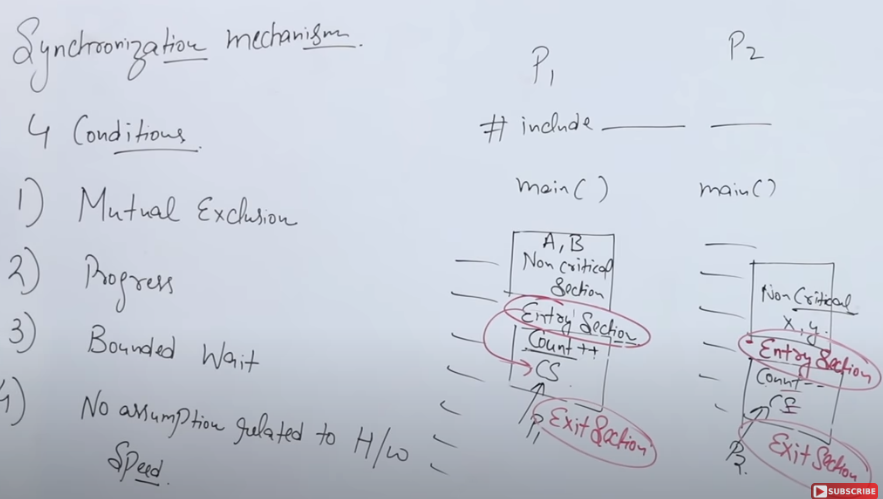 Synchronization mechanism.
4 Conditions.
1) Mutual Exclusion
2) Progress
3) Bounded Wait
4) No assumption related to H/w
Speed.
P1
# include
main()
A, B
Non critical
Section
Entry Section
Count++
CS
P1
Exit Section
P2
main()
Non Critical
x, y.
Entry Section
Count--
CS
P2
Exit Section
SUBSCRIBE